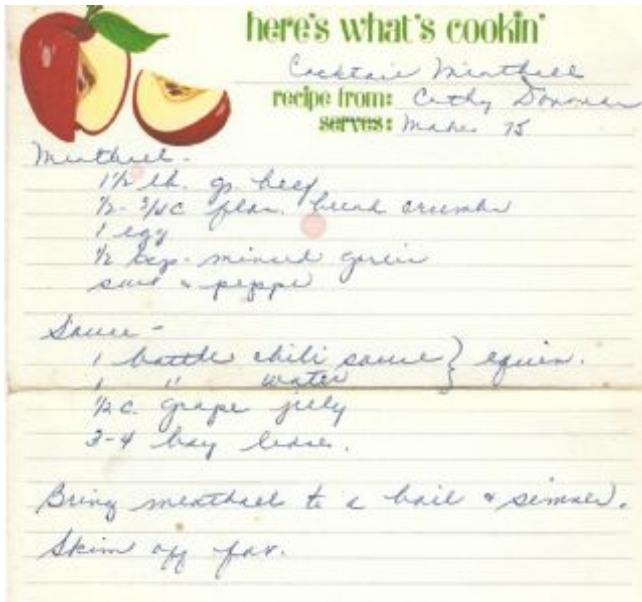 here's what's cookin'
Cocktail Meatball
recipe from: Cathy Donovan
serves: Makes 75
Meatball -
1 1/2 lb. gr. beef
1/2 - 3/4 c flav. bread crumbs
1 egg
1/2 tsp. minced garlic
salt & pepper
Sauce -
1 bottle chili sauce } equiv.
1 " water
1/2 c. grape jelly
3-4 bay leaves.
Bring meatball to a boil & simmer.
Skim off fat.